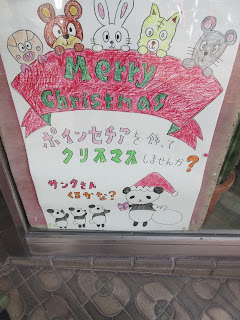 Merry
Christmas
ポインセチアを飾って
クリスマスしませんか？
サンタさん
くるかな？